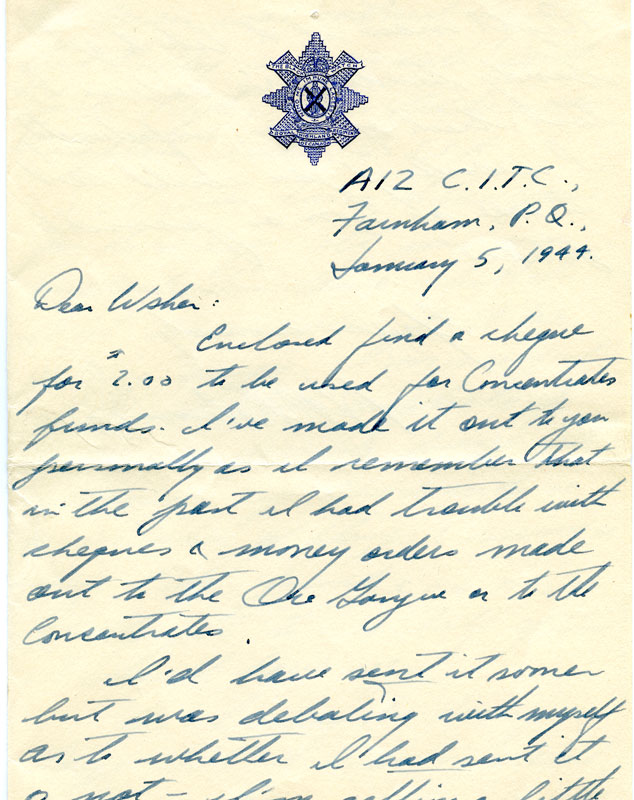 A12 C.I.T.C.,
Farnham, P.Q.,
January 5, 1944.
Dear Usher:
Enclosed find a cheque
for $2.00 to be used for Concentrates
funds. I've made it out to you
personally as I remember that
in the past I had trouble with
cheques & money orders made
out to the Ore Gangue or to the
Concentrates.
I'd have sent it sooner
but was debating with myself
as to whether I had sent it
or not - I'm getting a little